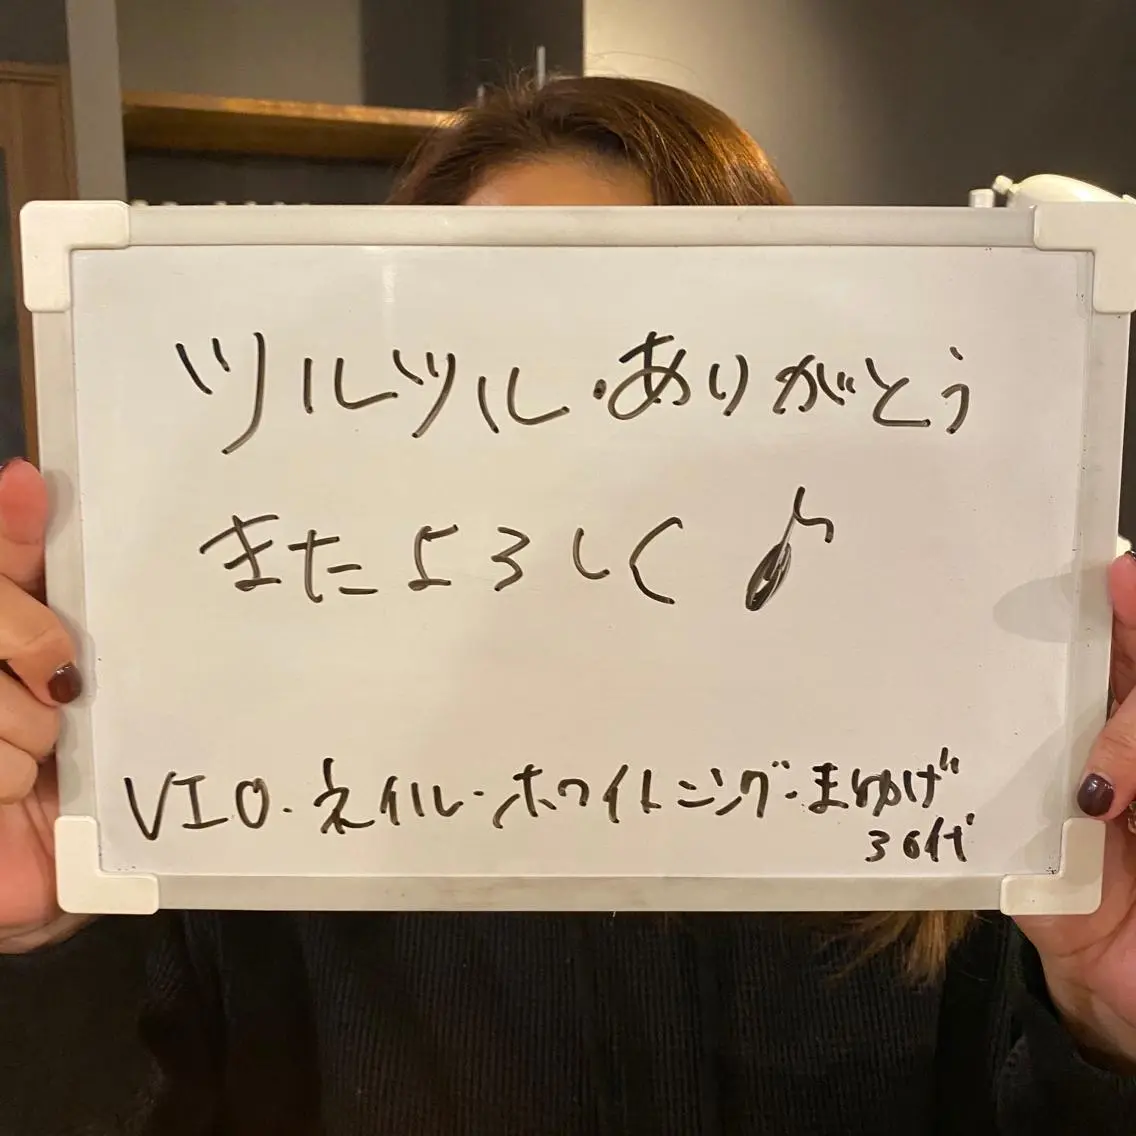 ツルツル・ありがとう
またよろしく♪
VIO・ネイル・ホワイトニング・まゆげ
30代